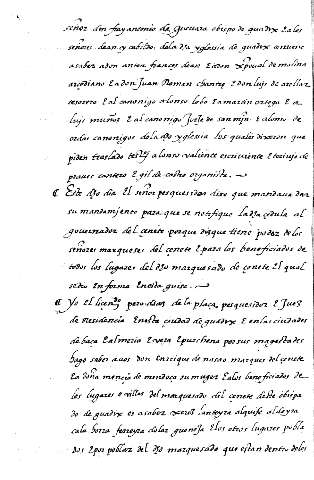 señor don fray antonio de guevara obispo de guadix e a los
señores dean y cabildo de la dha yglesia de guadix conviene
a saber a don antón françes dean e a don xpoual de molina
arçediano e a don Juan Roman chantre e don luis de
tesorero e al canonigo alonso lobo e a martin ortega e a
luis muñoz e al canonigo e alonso de
canonigos de la dha yglesia los quales dixeron que
piden traslado alonso escriviente e de
e gil de castro organista.
Este dho dia El señor pesquesidor dixo que mandaua dar
su mandamiento para que se notifique la dha çedula al
governador del çenete porque dizque tiene poder de los
señores marqueses del çenete e para los benefiçiados de
todos los lugares del dho marquesado de çenete El qual
se dio en forma en esta guisa.
Yo el liçendo pero diaz de la plaça pesquesidor e Juez
de Residencia en esta çiudad de guadix e en las çiudades
de baça e almeria e vera e purchena por sus magestades
hago saber a vos don enrrique de nasao marques del çenete
e a doña mençia de mendoça su muger e a los benefiçiados de
los lugares e villas del marquesado del çenete deste obispa
do de guadix es a saber xeres lanteyra alquife aldeyra
cala horra ferreyra dolar guenejа e los otros lugares pobla
dos e por poblar del dho marquesado que estan dentro de los